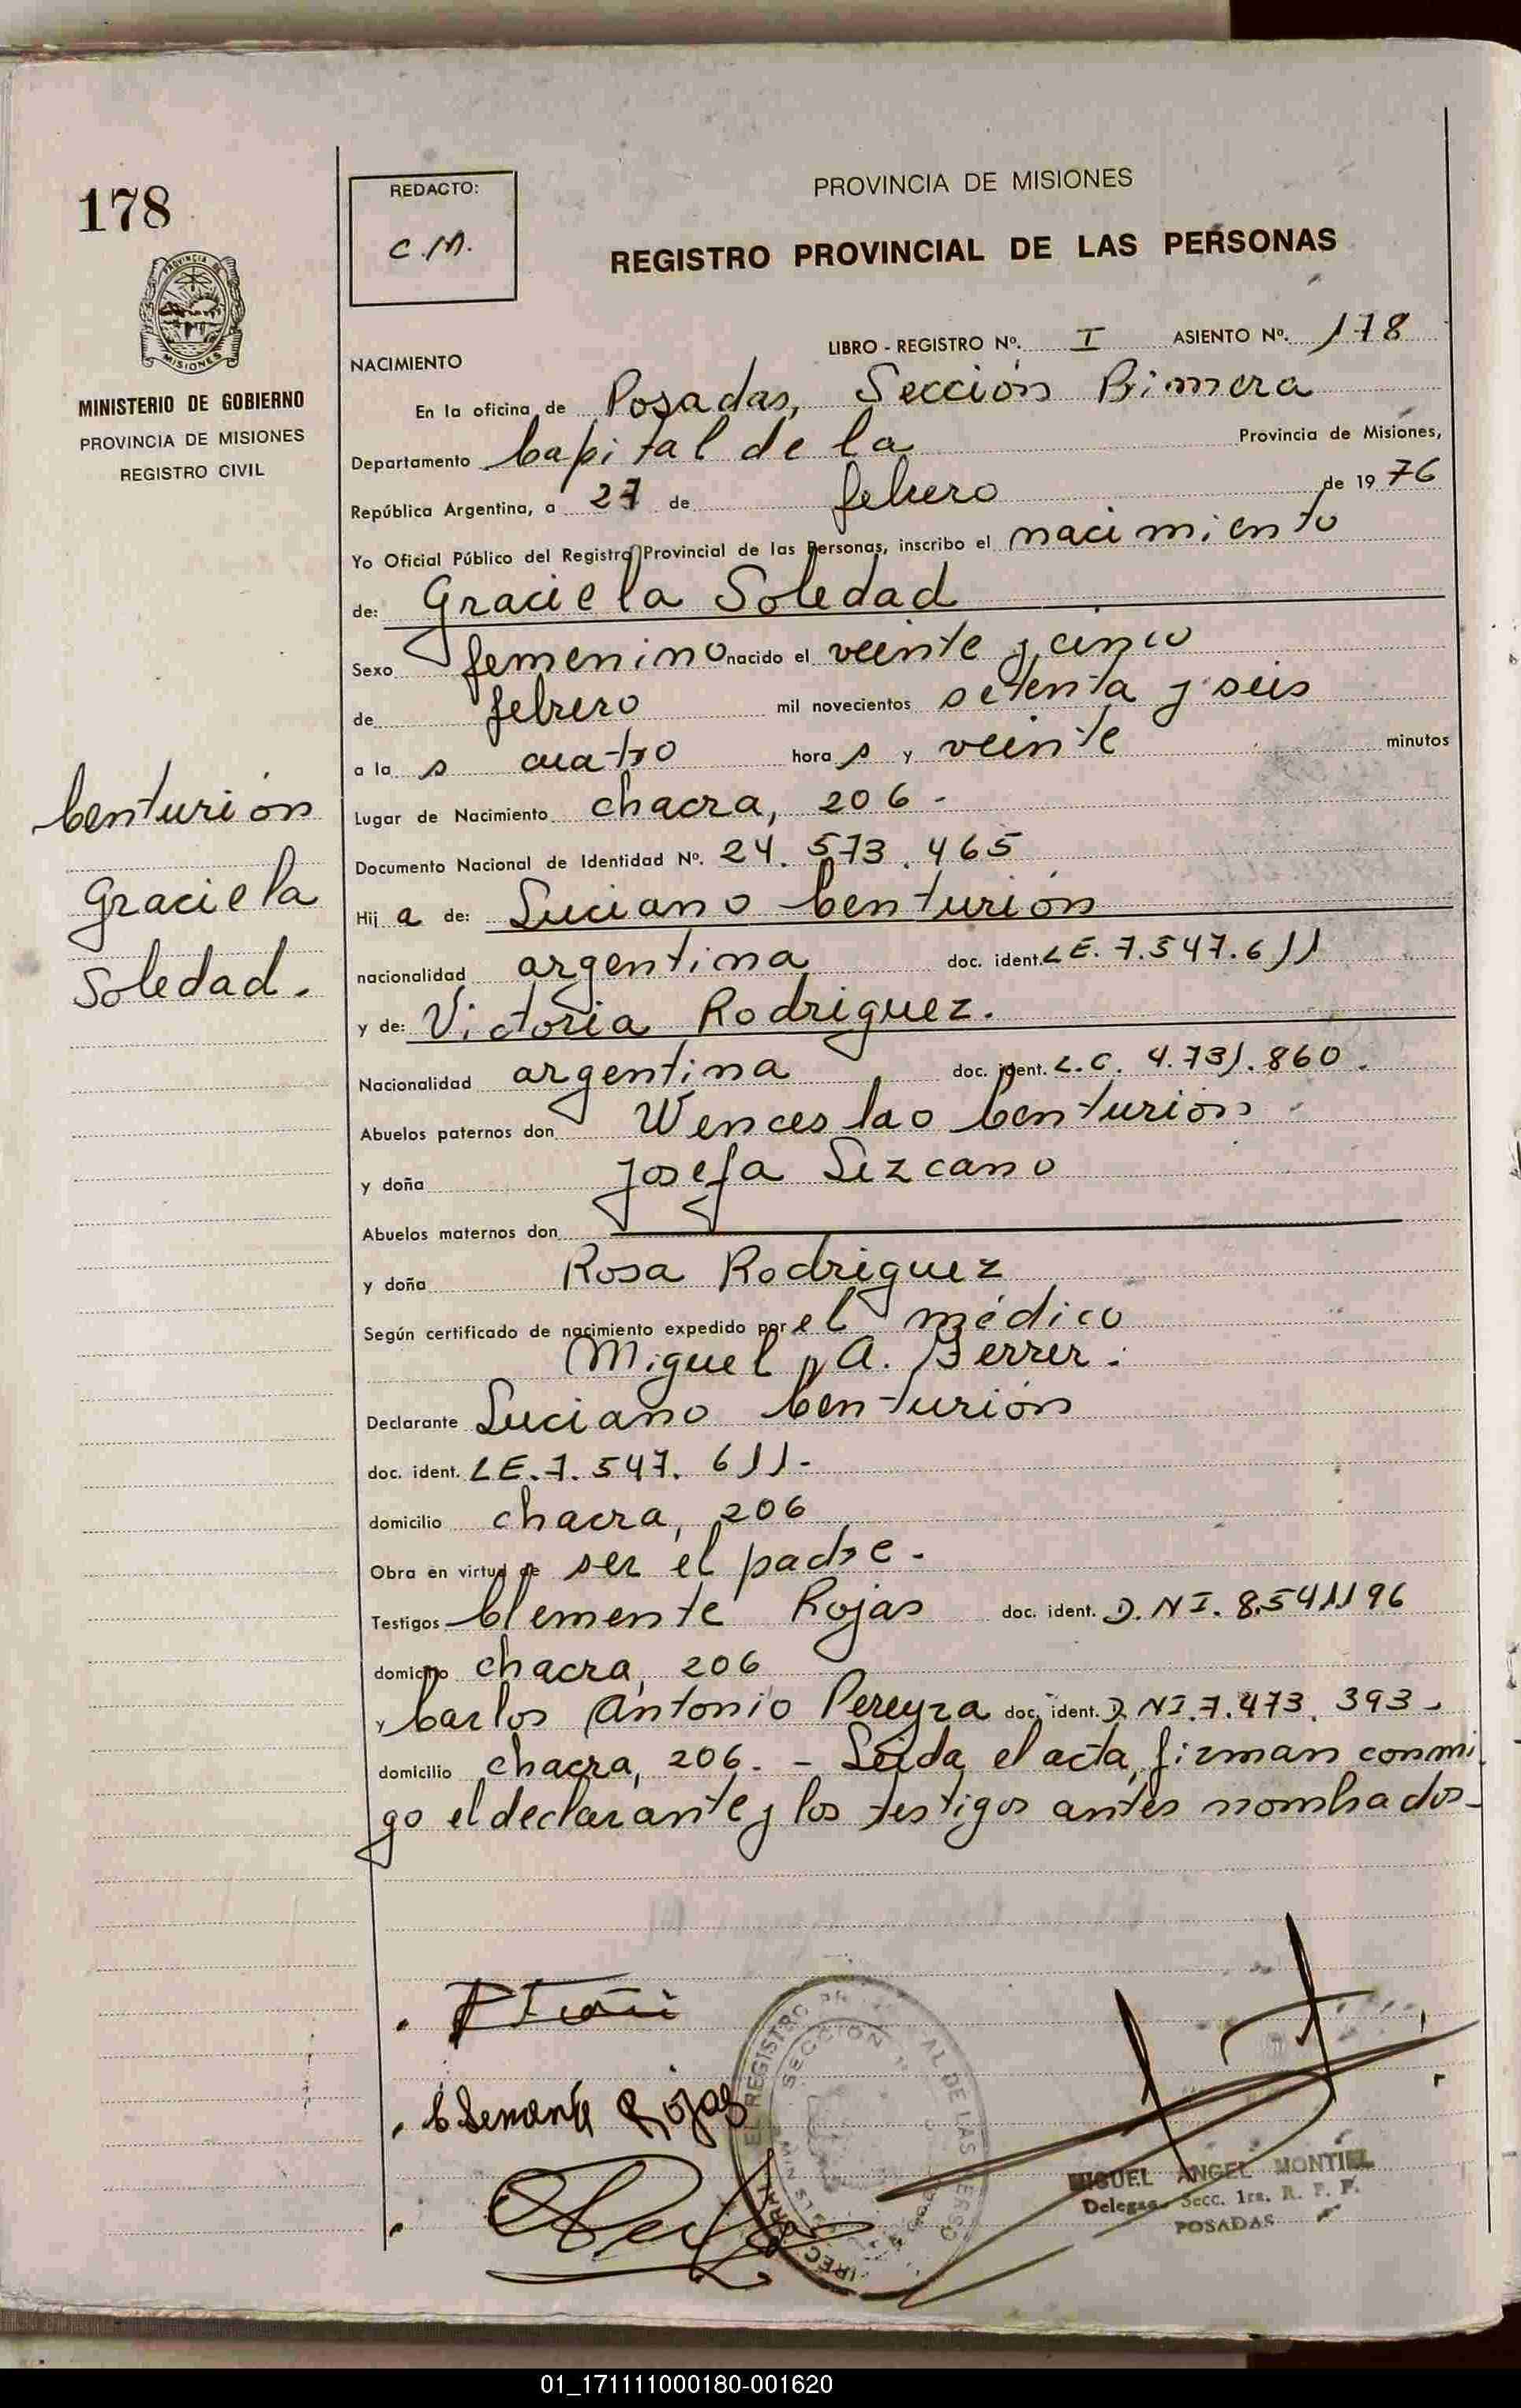 178
MINISTERIO DE GOBIERNO
PROVINCIA DE MISIONES
REGISTRO CIVIL
Centurión
Graciela
Soledad.
REDACTO:
C.M.
PROVINCIA DE MISIONES
REGISTRO PROVINCIAL DE LAS PERSONAS
LIBRO - REGISTRO Nº. I ASIENTO Nº. 178
NACIMIENTO
En la oficina de Posadas, Sección Primera
Departamento Capital de la Provincia de Misiones,
República Argentina, a 27 de febrero de 1976
Yo Oficial Público del Registro Provincial de las Personas, inscribo el nacimiento
de: Graciela Soledad
Sexo femenino nacido el veinte y cinco
de febrero mil novecientos setenta y seis
a las cuatro horas y veinte minutos
Lugar de Nacimiento chacra, 206 -
Documento Nacional de Identidad Nº. 24.573.465
Hija de: Luciano Centurión
nacionalidad argentina doc. ident. LE. 7.547.611
y de: Victoria Rodriguez.
Nacionalidad argentina doc. ident. L.C. 4.731.860.
Abuelos paternos don Wenceslao Centurión
y doña Josefa Lezcano
Abuelos maternos don
y doña Rosa Rodriguez
Según certificado de nacimiento expedido por el médico
Miguel A. Ferrer.
Declarante Luciano Centurión
doc. ident. LE. 7.547.611-
domicilio chacra, 206
Obra en virtud de ser el padre.
Testigos Clemente Rojas doc. ident. D.NI. 8.541196
domicilio chacra, 206
y Carlos Antonio Pereyra doc. ident. D.NI. 7.473.393-
domicilio chacra, 206. - Leida el acta, firman conmi
go el declarante y los testigos antes nombrados-
Clemente Rojas
MIGUEL ANGEL MONTIEL
Delegado Secc. 1ra. R. P. P.
POSADAS
01_171111000180-001620